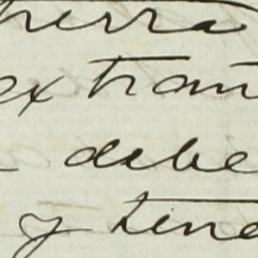 perra
extran
debe
y tene